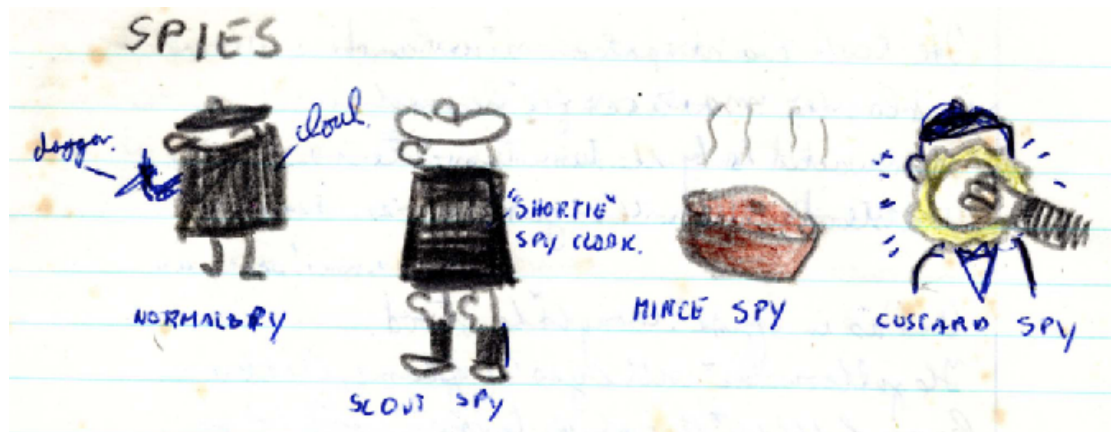 SPIES
dagger.
cloak.
"SHORTIE"
SPY CLOAK.
NORMAL SPY
SCOUT SPY
MINCE SPY
CUSTARD SPY